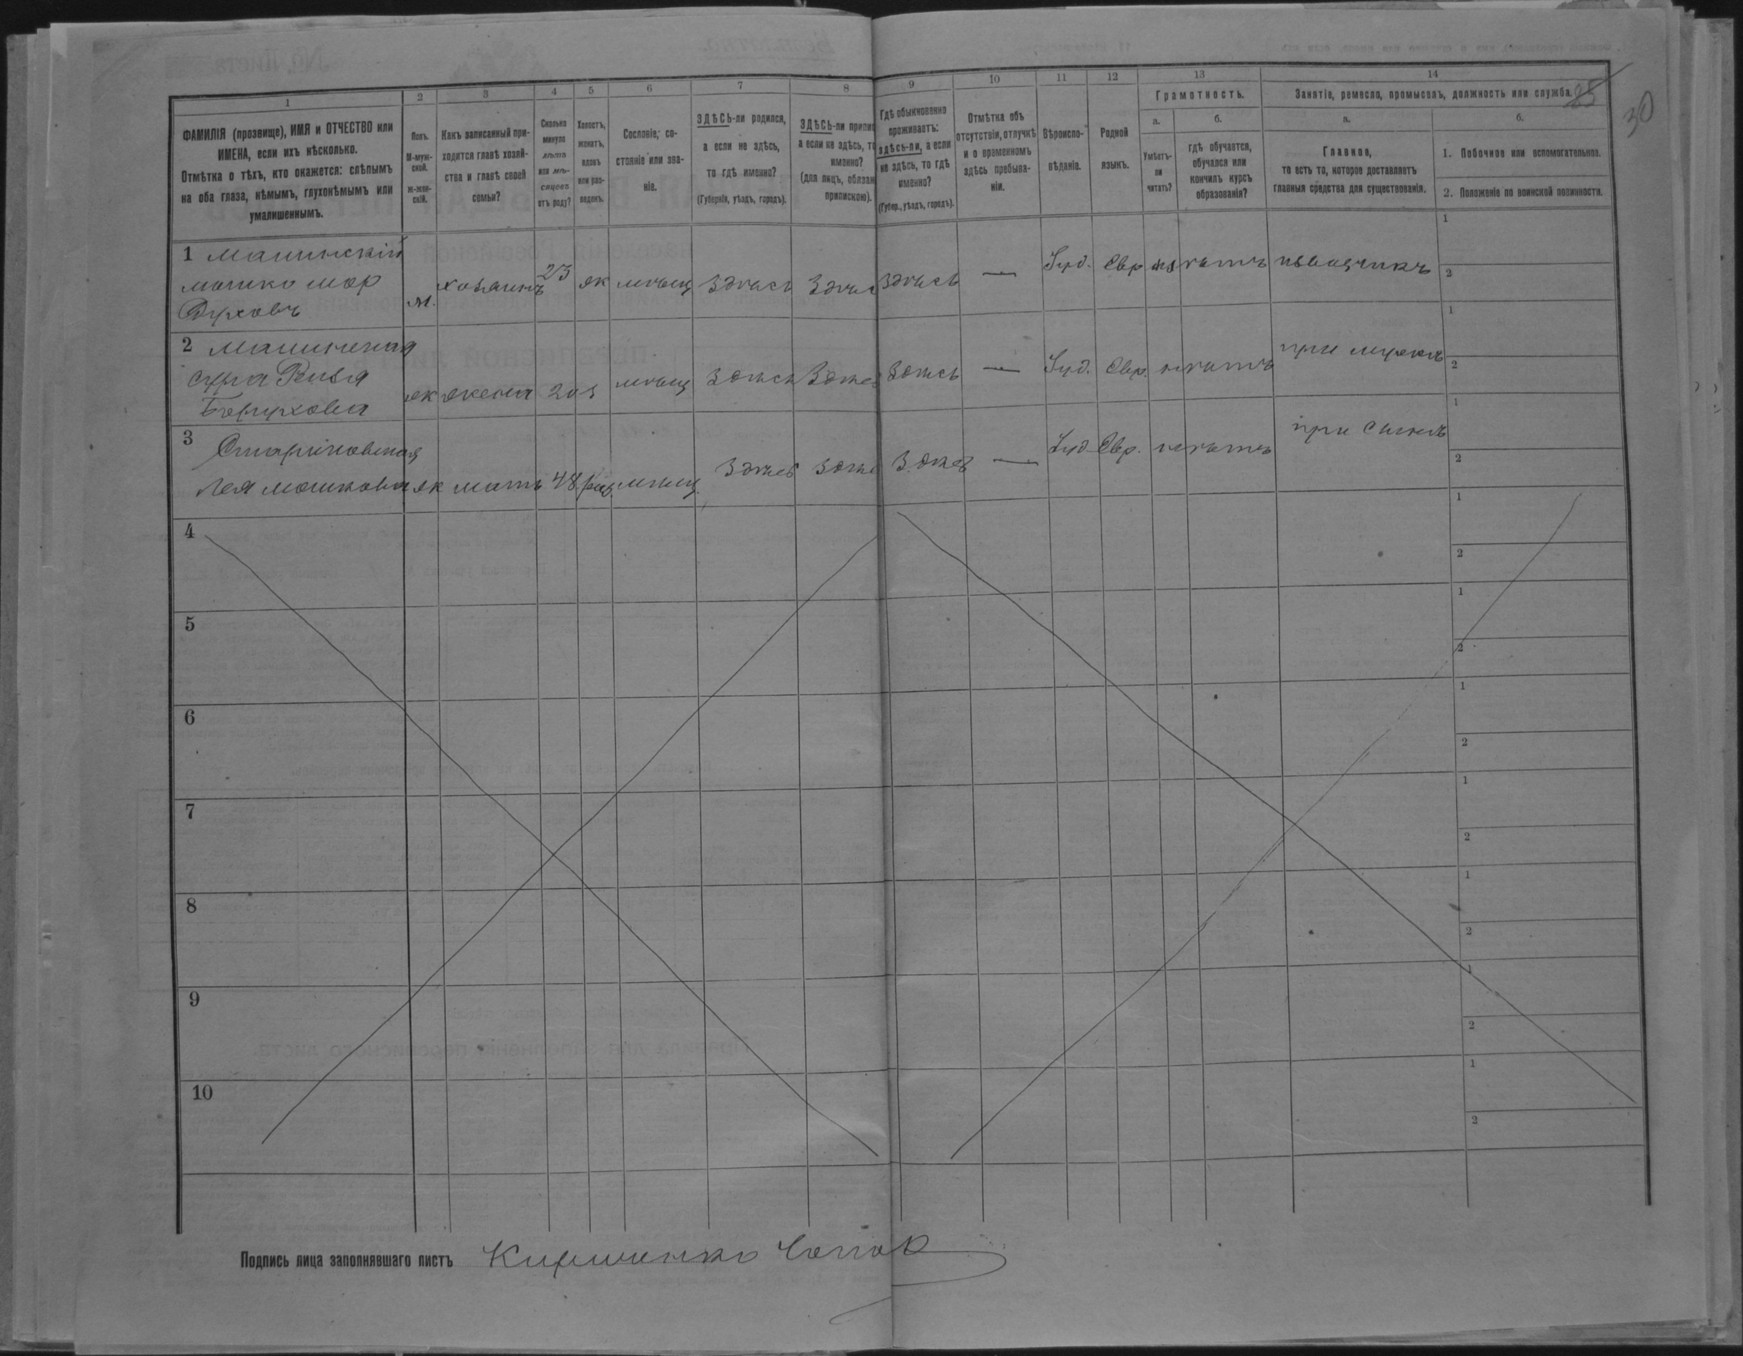 30
1 2 3 4 5 6 7 8 9 10 11 12 13 14
ФАМИЛІЯ (прозвище), ИМЯ и ОТЧЕСТВО или
ИМЕНА, если ихъ нѣсколько.
Отмѣтка о тѣхъ, кто окажется: слѣпымъ
на оба глаза, нѣмымъ, глухонѣмымъ или
умалишеннымъ.
Полъ.
М-муж-
ской.
Ж-жен-
скій.
Какъ записанный при-
ходится главѣ хозяй-
ства и главѣ своей
семьи?
Сколько
минуло
лѣтъ
или мѣ-
сяцевъ
отъ роду?
Холостъ,
женатъ,
вдовъ
или раз-
веденъ.
Сословіе, со-
стояніе или зва-
ніе.
ЗДѢСЬ-ли родился,
а если не здѣсь,
то гдѣ именно?
(Губернія, уѣздъ, городъ).
ЗДѢСЬ-ли припи
а если не здѣсь, то
именно?
(для лицъ, обязан
припискою).
Гдѣ обыкновенно
проживаетъ:
здѣсь-ли, а если
не здѣсь, то гдѣ
именно?
(Губер., уѣздъ, городъ).
Отмѣтка объ
отсутствіи, отлучкѣ
и о временномъ
здѣсь пребыва-
ніи.
Вѣроиспо-
вѣданіе.
Родной
языкъ.
Грамотность.
а.
Умѣетъ-
ли
читать?
б.
гдѣ обучается,
обучался или
кончилъ курсъ
образованія?
Занятіе, ремесло, промыселъ, должность или служба.
а.
Главное,
то есть то, которое доставляетъ
главныя средства для существованія.
б.
1. Побочное или вспомогательное.
2. Положеніе по воинской повинности.
1 Машинскій
Мошко Мор
Духовъ
м. хозяинъ 23 ж мѣщ здѣсь здѣс здѣсь — Іуд. Евр нѣтъ извощикъ
1
2
2
Рива
Борухова
ж жена 20 з мѣщ здѣсь здѣс здѣсь — Іуд. Евр. нѣтъ при мужѣ
1
2
3
Лея Мошкова ж мать 48 мѣщ. здѣсь здѣс здѣсь — Іуд Евр. нѣтъ при сынѣ
1
2
4
1
2
5
1
2
6
1
2
7
1
2
8
1
2
9
1
2
10
1
2
Подпись лица заполнявшаго листъ